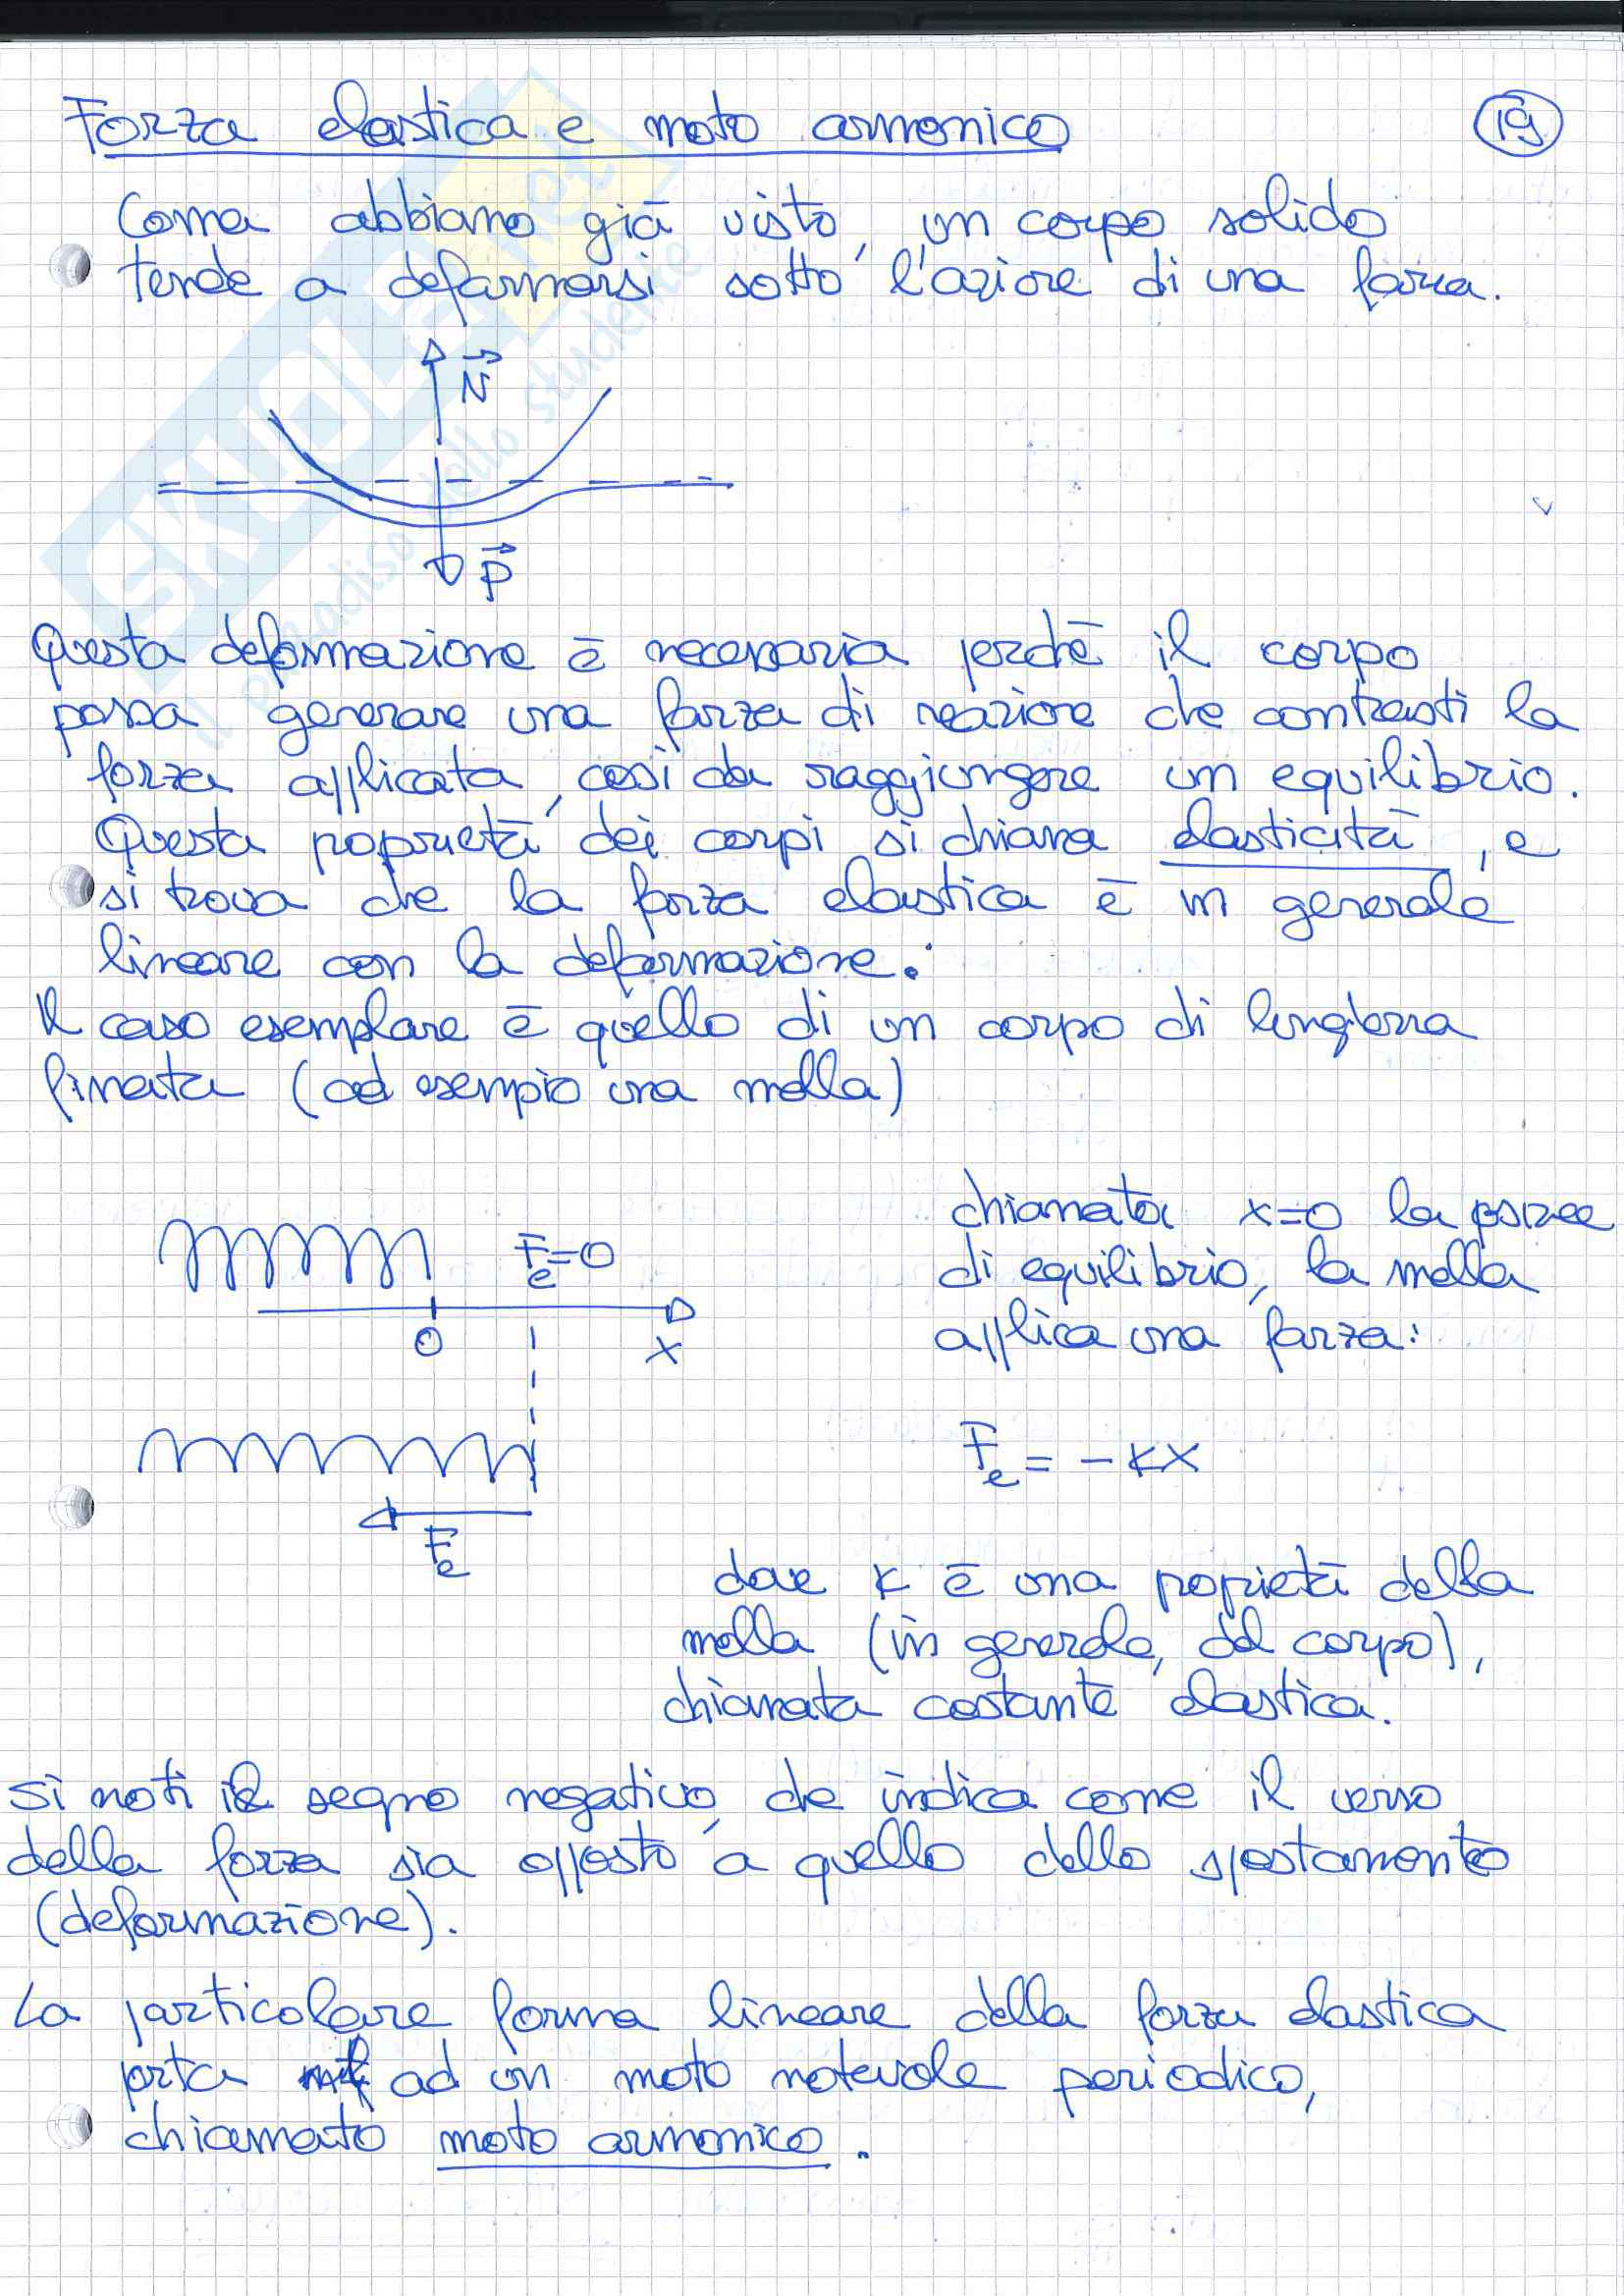 Forza elastica e moto armonico
19
Come abbiamo già visto, un corpo solido
tende a deformarsi sotto l'azione di una forza.
N
P
Questa deformazione è necessaria perché il corpo
possa generare una forza di reazione che contrasti la
forza applicata, così da raggiungere un equilibrio.
Questa proprietà dei corpi si chiama elasticità, e
si trova che la forza elastica è in generale
lineare con la deformazione.
Il caso esemplare è quello di un corpo di lunghezza
finita (ad esempio una molla)
Fe=0
0
x
Fe
chiamata x=0 la
di equilibrio, la molla
applica una forza:
Fe = -kx
dove k è una proprietà della
molla (in generale, del corpo),
chiamata costante elastica.
Si noti il segno negativo, che indica come il verso
della forza sia opposto a quello dello spostamento
(deformazione).
La particolare forma lineare della forza elastica
porta ad un moto notevole periodico,
chiamato moto armonico.
SKUOLA.net
il paradiso dello studente